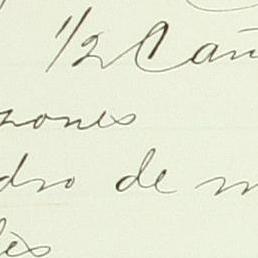 1/2 Cañ
zones
dro de m
és